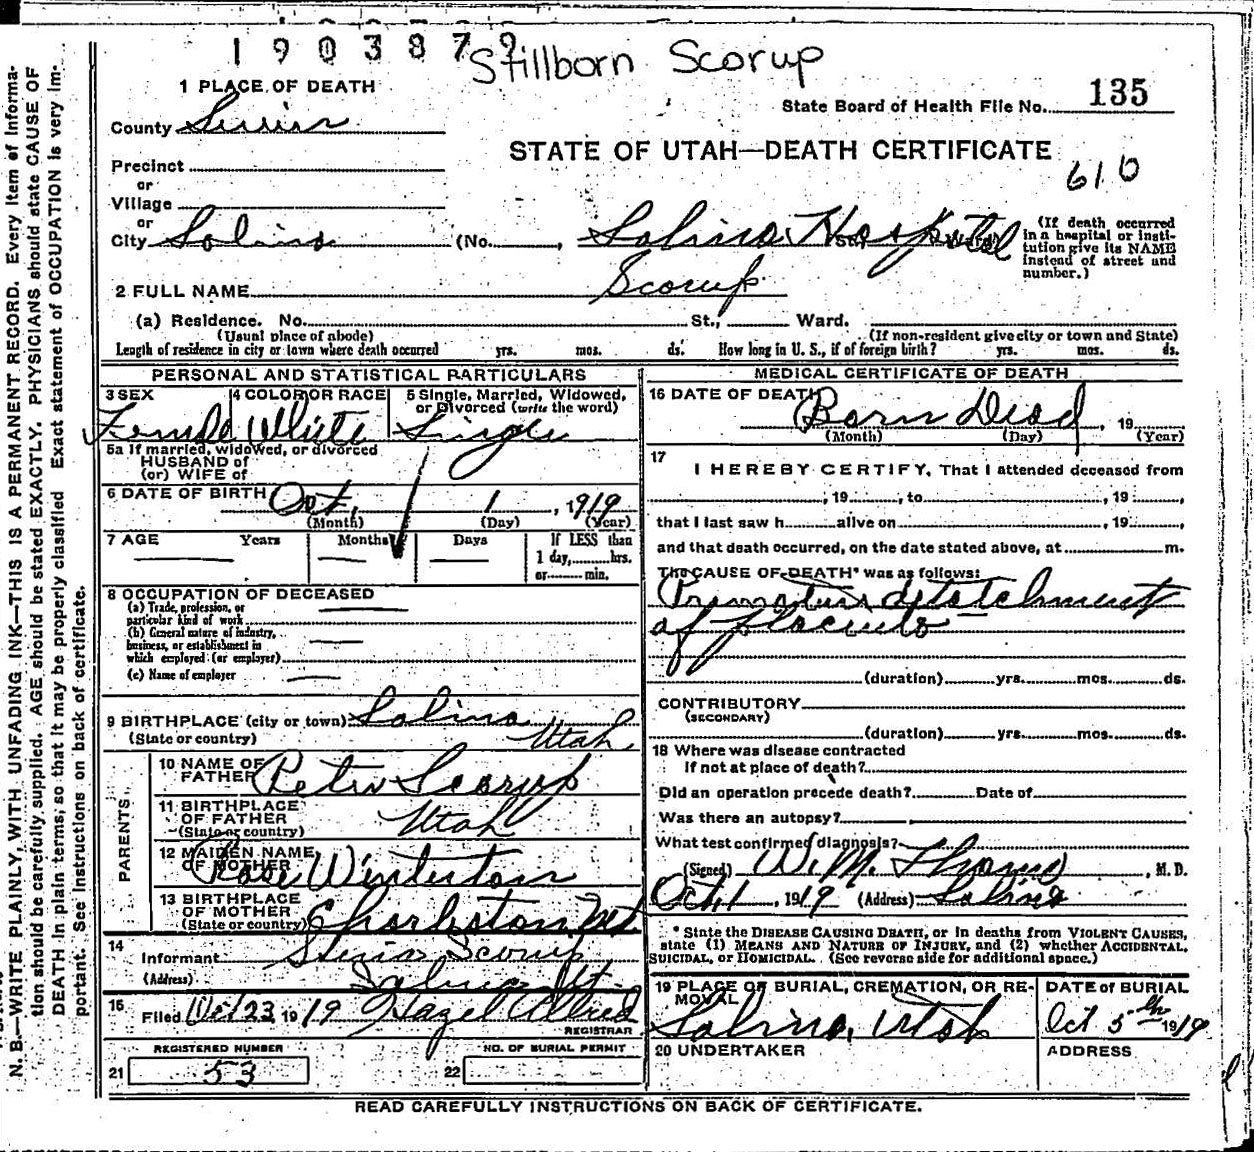 1903879
Stillborn Scorup
1 PLACE OF DEATH
State Board of Health File No. 135
County Sevier
STATE OF UTAH—DEATH CERTIFICATE
610
Precinct
or
Village
or
City Salina (No. , Salina Hospital St. Ward)
(If death occurred in a hospital or institution give its NAME instead of street and number.)
2 FULL NAME Scorup
(a) Residence. No. St., Ward.
(Usual place of abode) (If non-resident give city or town and State)
Length of residence in city or town where death occurred yrs. mos. ds. How long in U. S., if of foreign birth? yrs. mos. ds.
PERSONAL AND STATISTICAL PARTICULARS
3 SEX 4 COLOR OR RACE 5 Single, Married, Widowed, or Divorced (write the word)
Female White Single
5a If married, widowed, or divorced
HUSBAND of
(or) WIFE of
6 DATE OF BIRTH Oct. 1, 1919
(Month) (Day) (Year)
7 AGE Years Months Days If LESS than
1 day, hrs.
or min.
8 OCCUPATION OF DECEASED
(a) Trade, profession, or
particular kind of work
(b) General nature of industry,
business, or establishment in
which employed (or employer)
(c) Name of employer
9 BIRTHPLACE (city or town) Salina
(State or country) Utah
PARENTS
10 NAME OF FATHER Peter Scorup
11 BIRTHPLACE OF FATHER
(State or country) Utah
12 MAIDEN NAME OF MOTHER Winterton
13 BIRTHPLACE OF MOTHER
(State or country) Charleston
14
Informant Scorup
(Address) Salina Ut.
15
Filed Oct 23 1919 Hazel Allred
REGISTRAR
REGISTERED NUMBER NO. OF BURIAL PERMIT
21 53 22
MEDICAL CERTIFICATE OF DEATH
16 DATE OF DEATH Born Dead, 19
(Month) (Day) (Year)
17
I HEREBY CERTIFY, That I attended deceased from
, 19 , to , 19 ,
that I last saw h alive on , 19 ,
and that death occurred, on the date stated above, at m.
The CAUSE OF DEATH* was as follows:
Premature detatchment
of placenta
(duration) yrs. mos. ds.
CONTRIBUTORY
(SECONDARY)
(duration) yrs. mos. ds.
18 Where was disease contracted
If not at place of death?
Did an operation precede death? Date of
Was there an autopsy?
What test confirmed diagnosis?
(Signed) W. M. , M. D.
Oct. 1, 1919 (Address) Salina
* State the DISEASE CAUSING DEATH, or in deaths from VIOLENT CAUSES,
state (1) MEANS AND NATURE OF INJURY, and (2) whether ACCIDENTAL,
SUICIDAL, or HOMICIDAL. (See reverse side for additional space.)
19 PLACE OF BURIAL, CREMATION, OR REMOVAL DATE OF BURIAL
Salina, Utah Oct 5th 1919
20 UNDERTAKER ADDRESS
READ CAREFULLY INSTRUCTIONS ON BACK OF CERTIFICATE.
N. B.—WRITE PLAINLY, WITH UNFADING INK—THIS IS A PERMANENT RECORD. Every item of informa-
tion should be carefully supplied. AGE should be stated EXACTLY. PHYSICIANS should state CAUSE OF
DEATH in plain terms, so that it may be properly classified Exact statement of OCCUPATION is very im-
portant. See instructions on back of certificate.